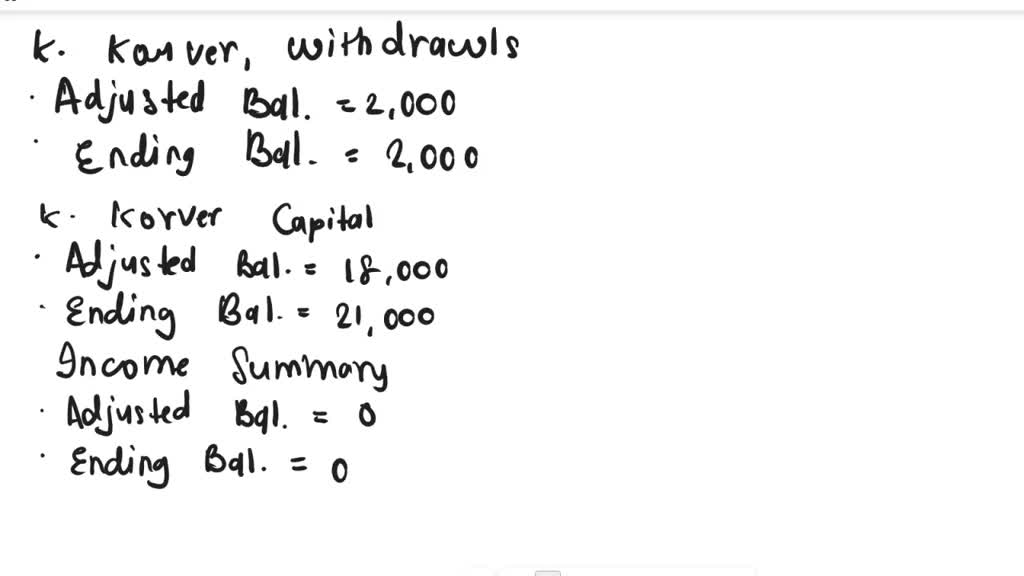 K. Korver, withdrawls
· Adjusted Bal. = 2,000
· Ending Bal. = 2,000
K. Korver Capital
· Adjusted Bal. = 18,000
· Ending Bal. = 21,000
Income Summary
· Adjusted Bal. = 0
· Ending Bal. = 0